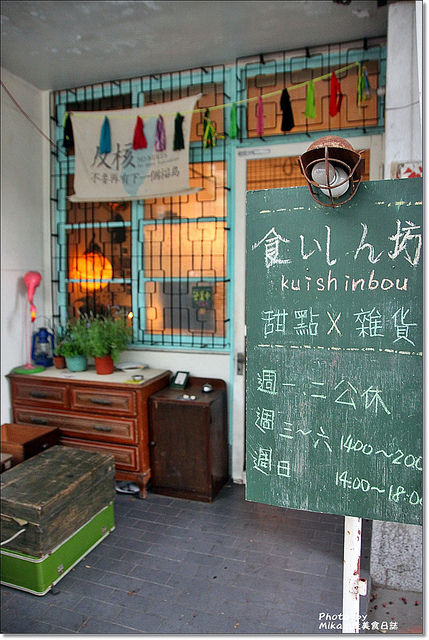 反核
NO NUKES
不要再有下一個福島
食いしん坊
kuishinbou
甜點 X 雜貨
週一.二公休
週三~六 1400~200
週日 14:00~18:0
Photo by
Mika
美食日誌